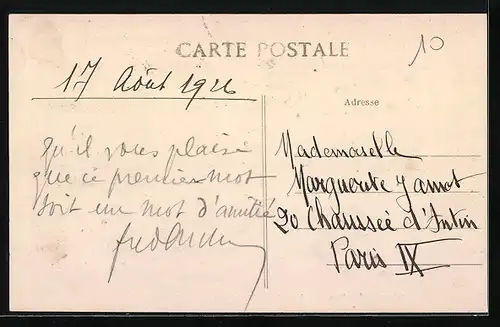 CARTE POSTALE
10
17 Août 1926
Adresse
Qu'il vous plaise
que ce premier mot
soit un mot d'amitié
Mademoiselle
Marguerite Jamot
20 Chaussée d'Antin
Paris IX